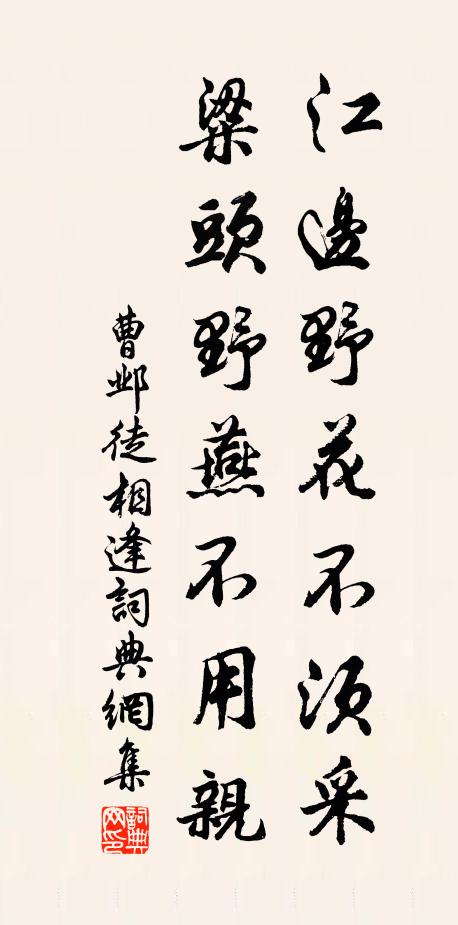 江邊野花不須采
梁頭野燕不用親
曹邺徒相逢詞典網集
詞典網印